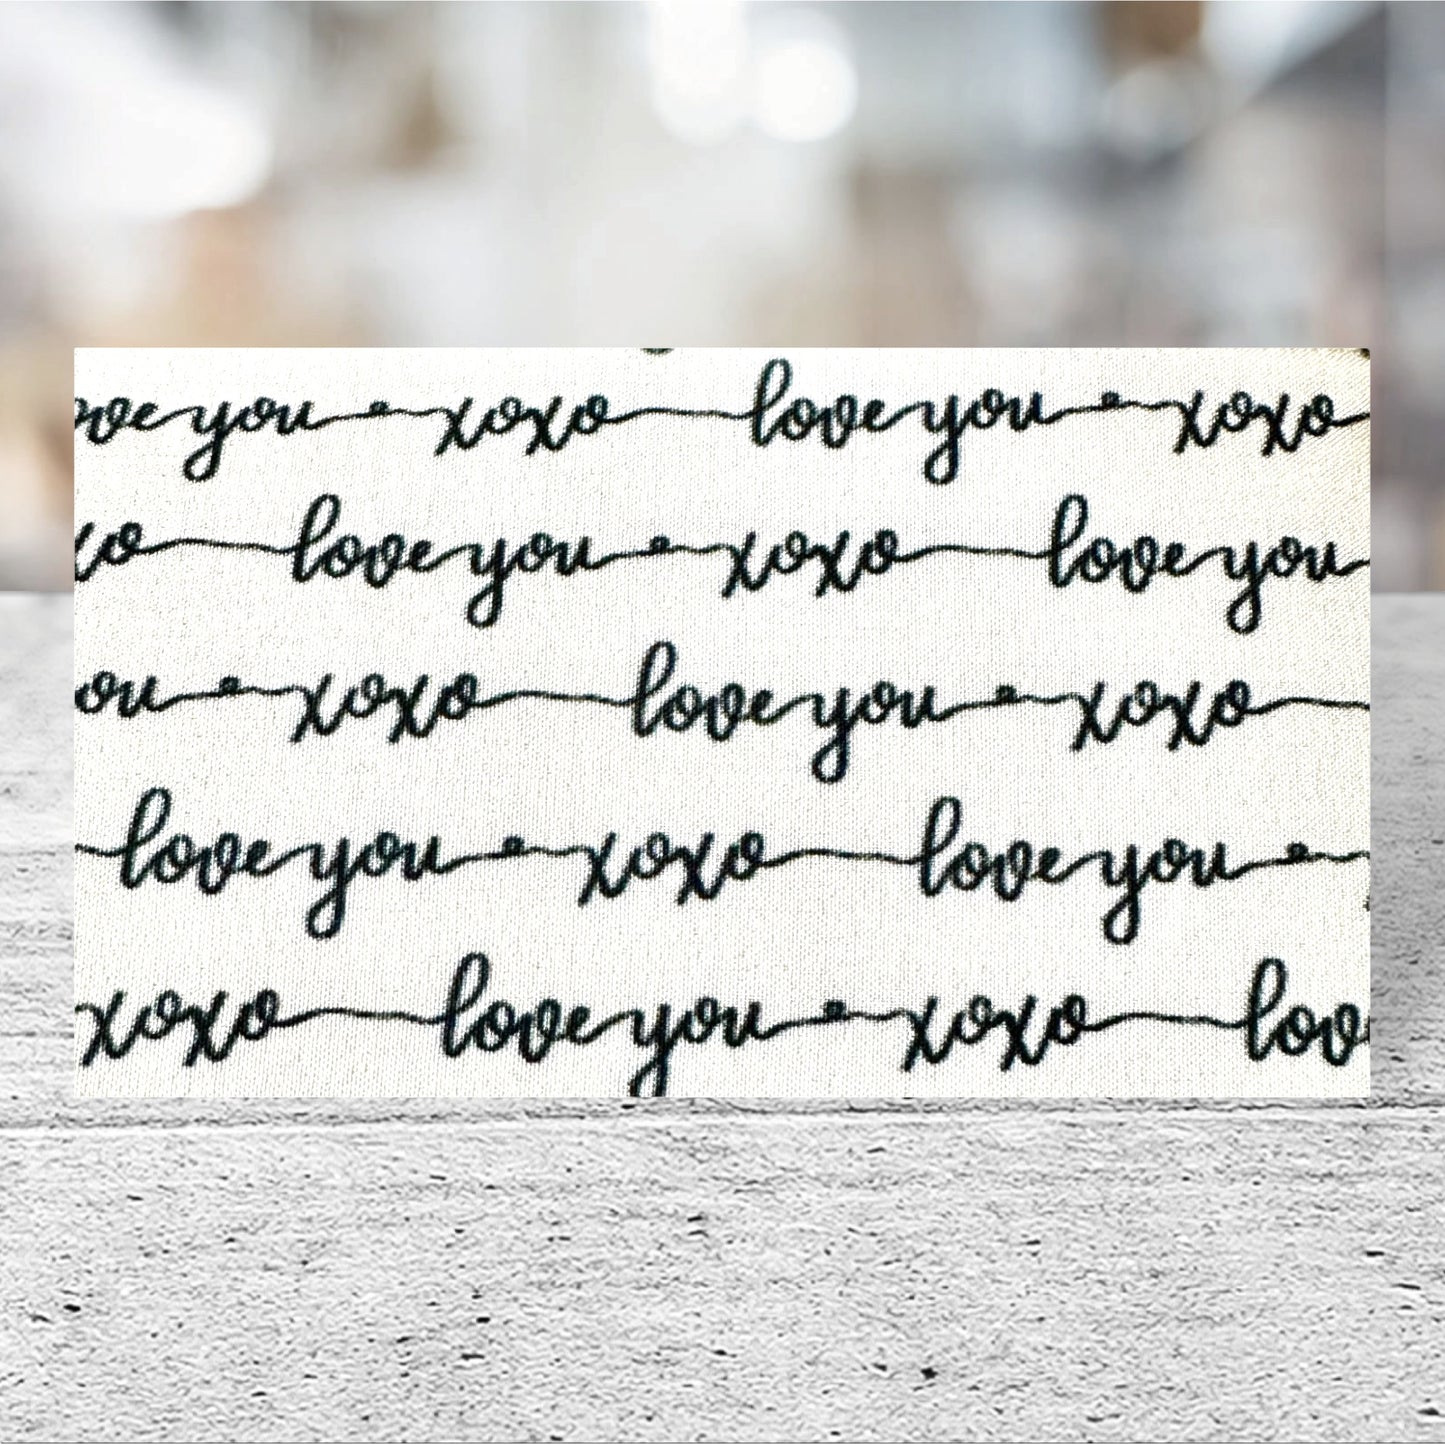 ove you xoxo love you xoxo
xo love you xoxo love you
ou xoxo love you xoxo
love you xoxo love you
xoxo love you xoxo lov